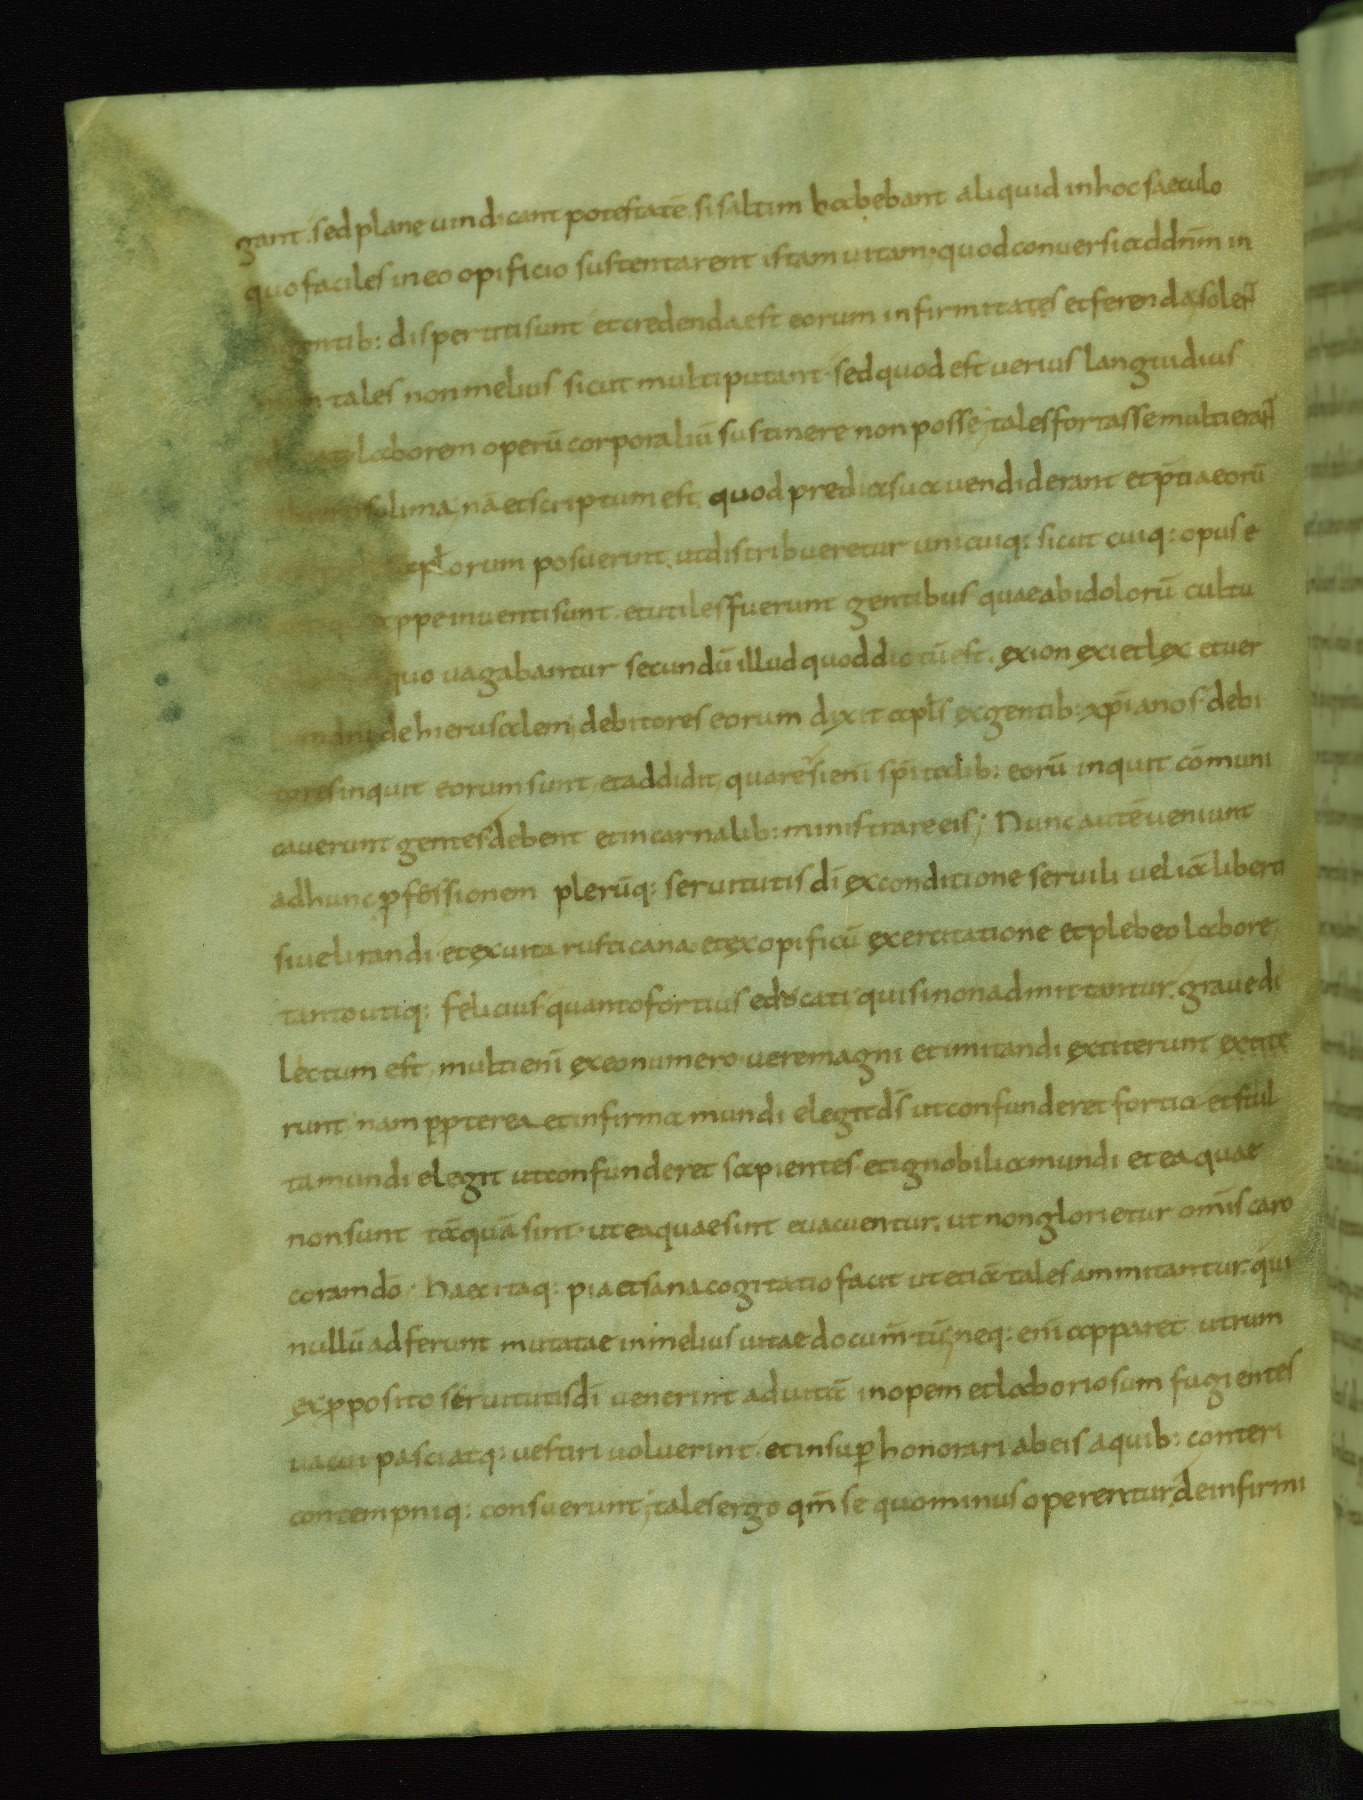 gant. sed plane uindicant potestatē. si saltim habebant aliquid in hoc saeculo
quo faciles in eo opificio sustentarent istam uitam, quod conuersi ad dnm̄ in
digentib: dispertiti sunt et credenda est eorum infirmitas et ferenda, solent
enim tales non melius sicut multi putant. sed quod est uerius languidius
laborem operū corporaliū sustinere non posse, tales fortasse multi erant
solima, nā et scriptum est, quod predia sua uendiderant et p̄tia eorū
apl̄orum posuerint, ut distribueretur unicuiq: sicut cuiq: opus e
ppe inuenti sunt. et utiles fuerunt gentibus quae ab idolorū cultu
quo uagabantur secundū illud quod dictū est. ex ion exiet lex et uer
bum dn̄i de hierusalem, debitores eorum dixit apl̄s ex gentib: xp̄ianos. debi
tores inquit eorum sunt, et addidit, quare, si enī sp̄italib: eorū inquit cōmuni
cauerunt gentes debent et in carnalib: ministrare eis; Nunc autē ueniunt
ad hunc professionem plerūq: seruitutis dī ex conditione seruili uel iā liberti
siue lirandi. et ex uita rusticana. et ex opificū exercitatione et plebeo labore,
tanto utiq: felicius quanto fortius edocati, qui si non admittantur. graue di
lectum est, multi enī ex eo numero. uere magni et imitandi extiterunt extite
runt nam ppterea et infirma mundi elegit ds̄ ut confunderet fortia et stul
ta mundi elegit ut confunderet sapientes. et ignobilia mundi et ea quae
non sunt tāquā sint. ut ea quae sint euacuentur. ut non glorietur omīs caro
coram dō. haec itaq: pia et sana cogitatio facit ut etiā tales ammitantur. qui
nullū adferunt mutatae in melius uitae documtū, neq: enī apparet utrum
ex pposito seruitutis dī uenerint ad uitā inopem et laboriosum fugientes
uacui pasci atq: uestiri uoluerint. et insup honorari ab eis a quib: conteri
contempniq: consuerunt; tales ergo qm̄ se quominus operentur, de infirmi